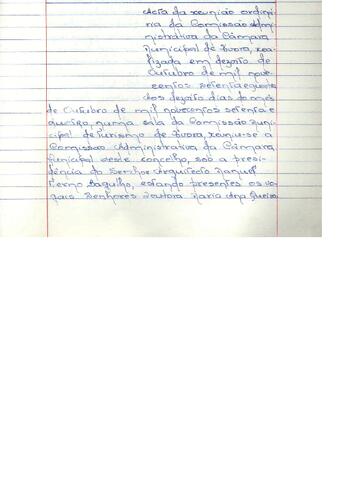 Acta da reunião ordiná-
ria da Comissão Admi-
nistrativa da Câmara
Municipal de Évora, rea-
lizada em dezoito de
Outubro de mil nove-
centos setenta e quatro
Aos dezoito dias do mês
de Outubro de mil novecentos setenta e
quatro, numa sala da Comissão Muni-
cipal de Turismo de Évora, reuniu-se a
Comissão Administrativa da Câmara
Municipal deste concelho, sob a presi-
dência do Senhor Arquitecto Manuel
Fermo Bagulho, estando presentes os vo-
gais Senhores Doutora Maria Ana Queiro